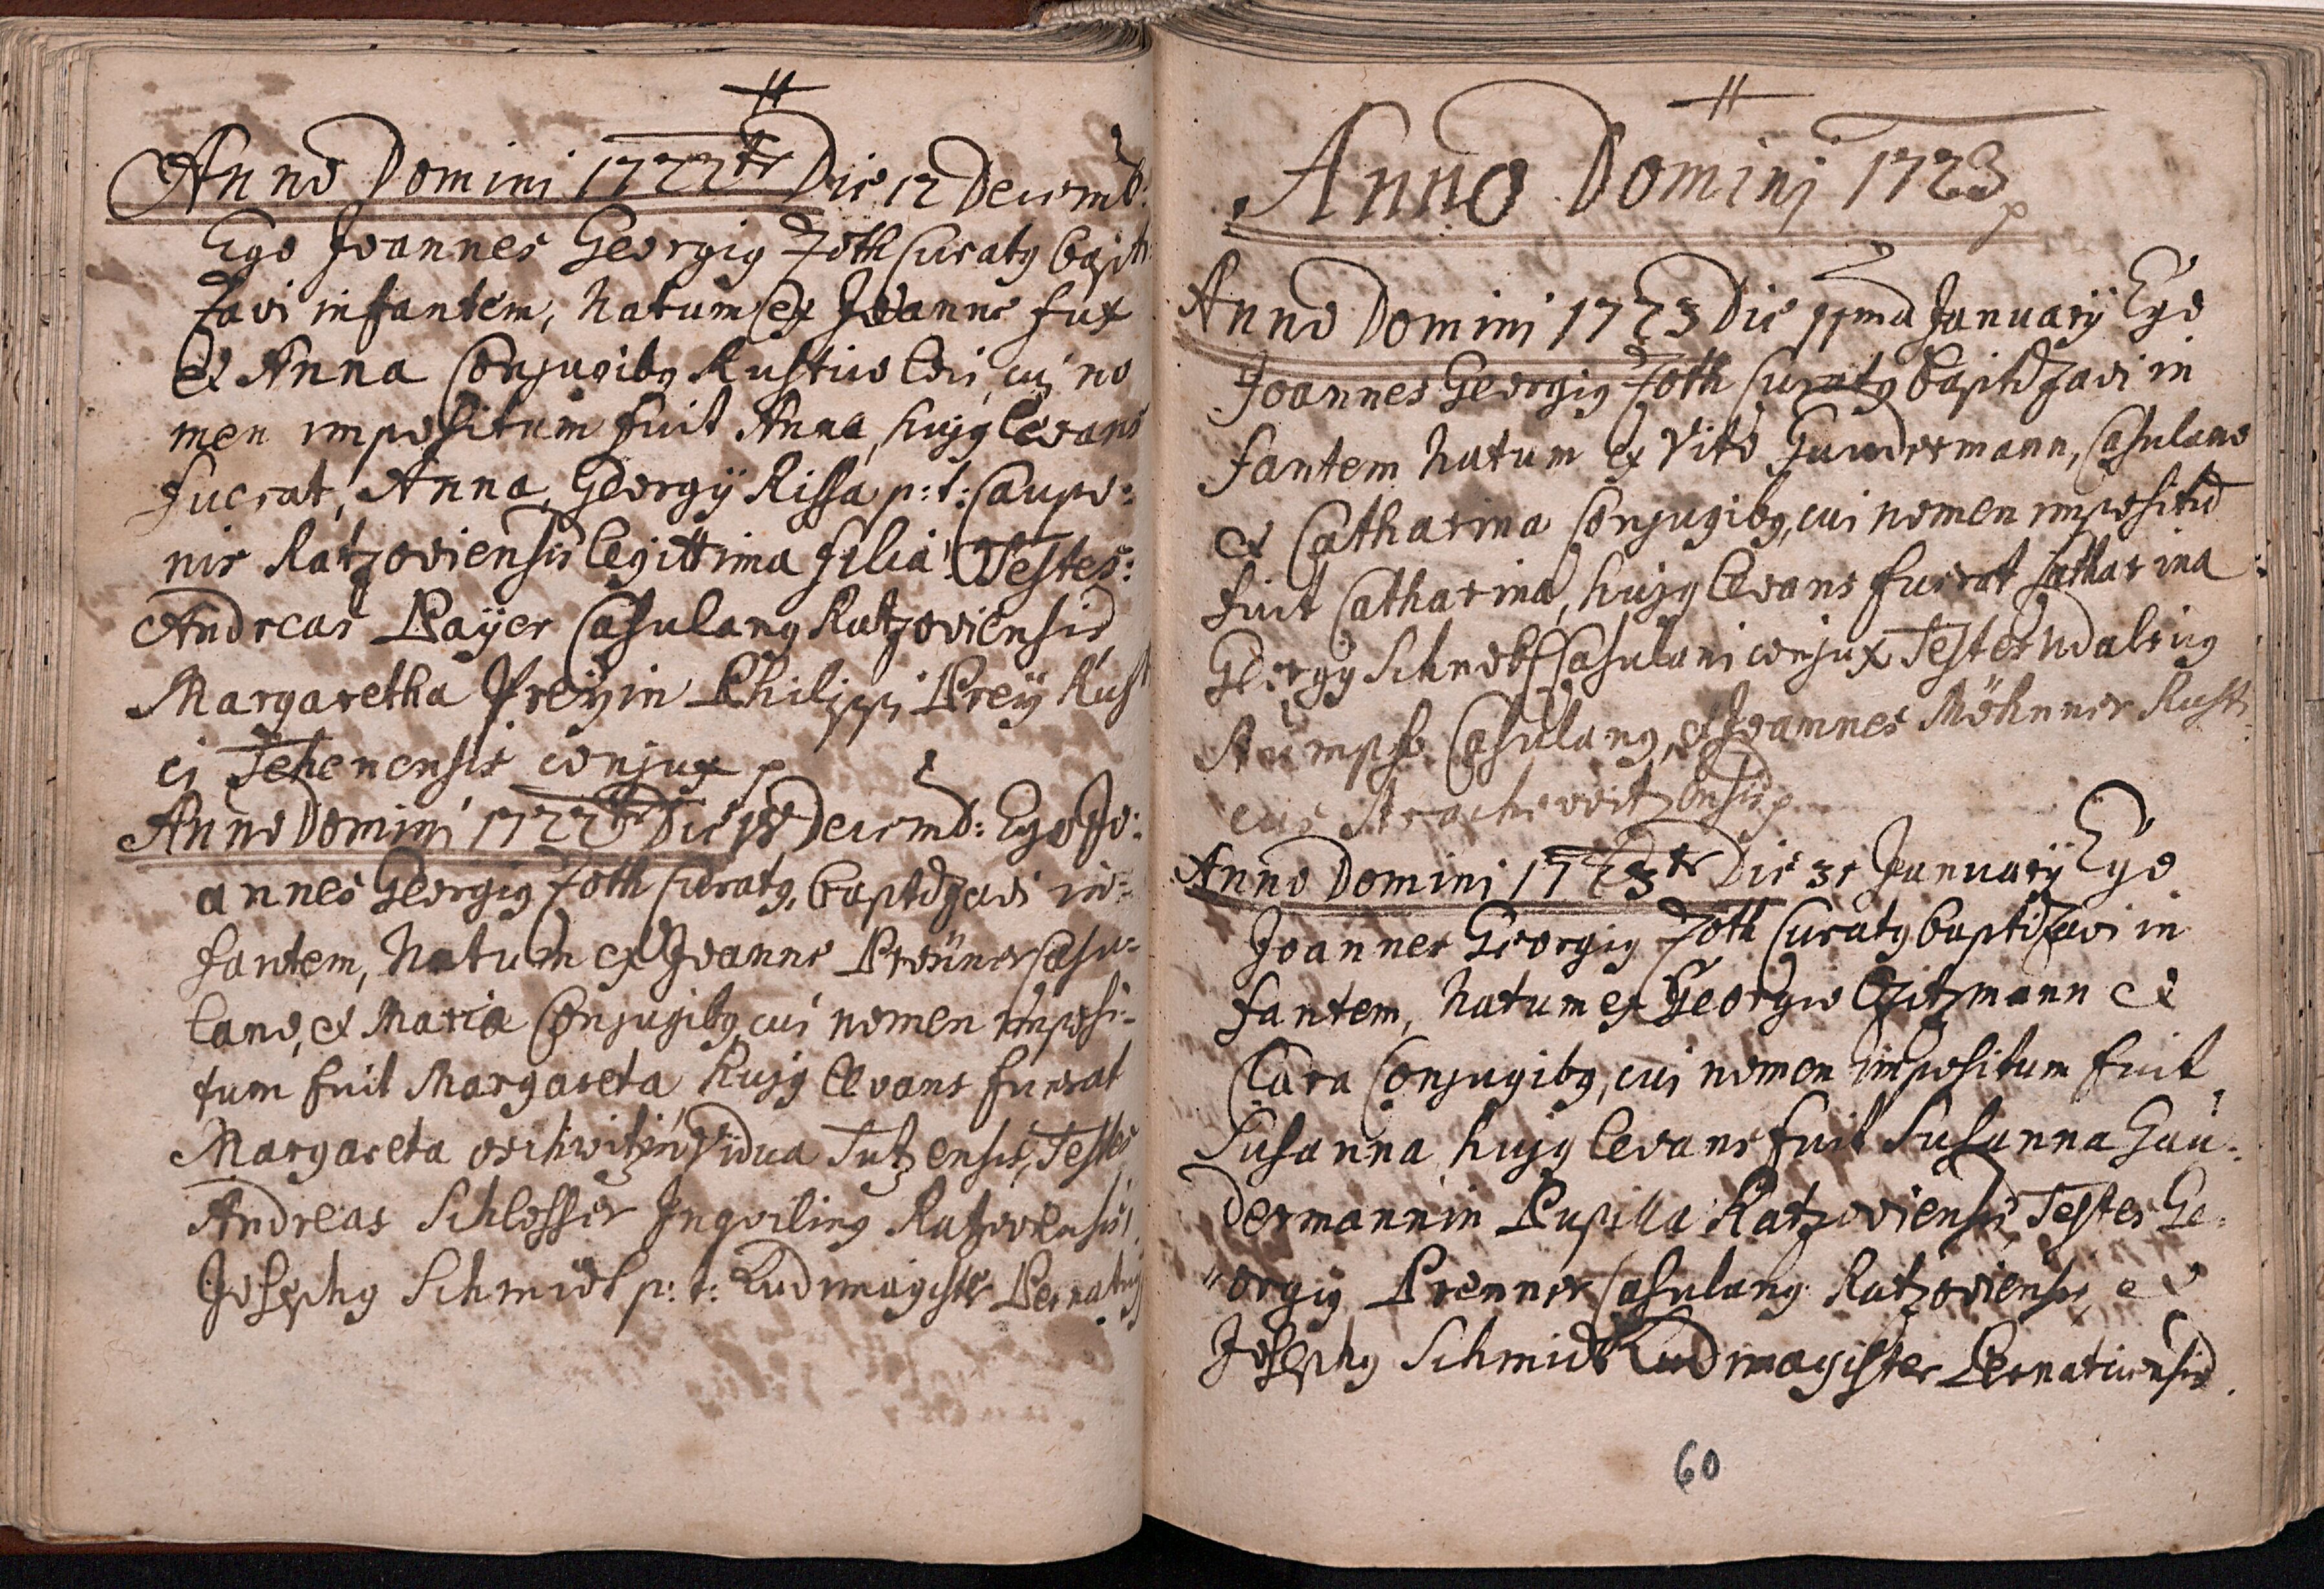 Anno Domini 1722tr Die 12 Decemb:
Ego Joannes Georgig Zoth Curatg bapti
zavi infantem, Natum ex Joanne Fux
et Anna Conjugibg Rustico loci, cuj no
men impositum fuit Anna, hujg levans
fuerat, Anna, Georgÿ Rissa p: t: Caupo:
nis Ratzoviensis legittima filia. Testes:
Andreas Payer Casulang Ratzoviensis,
Margaretha Preÿin Philippi Preÿ Rust
ci Tehenensis conjux
Anno Domini 1722tr Die 18 Decemb: Ego Jo:
annes Georgig Zoth Curatg, baptizavi in:
fantem, Natum ex Joanne Prenner Casu:
lano, et Maria Conjugibg cui nomen imposi:
tum fuit Margareta, hujg levans fuerat
Margareta Vidua Tutzensis, Testes
Andreas Schlosser Inquiling Ratzoviensis,
Josephg Schmidt p: t: Ludimagister
Anno Domini 1723
Anno Domini 1723 Die 11ma Januarÿ Ego
Joannes Georgig Zoth Curatg baptizavi in
fantem Natum ex Vito Gundermann, Casulano
et Catharina Conjugibg, cui nomen impositū
fuit Catharina, hujg levans fuerat Catharina
Georgÿ Casulani conjux Testes Udalricg
Stumpf Casulang, et Joannes Möhnner Rusti
cus
Anno Domini 1723tr Die 31 Januarÿ Ego
Joannes Georgig Zoth Curatg baptizavi in
fantem, Natum ex Georgio Czitzmann et
Clara Conjugibg, cui nomen impositum fuit
Susanna hujg levans fuit Susanna Gun:
dermannin Pupilla Ratzoviensis, Testes Ge:
"orgig Prenner Casulang Ratzoviensis, et
Josephg Schmidt Ludimagister Pernaticensis.
60